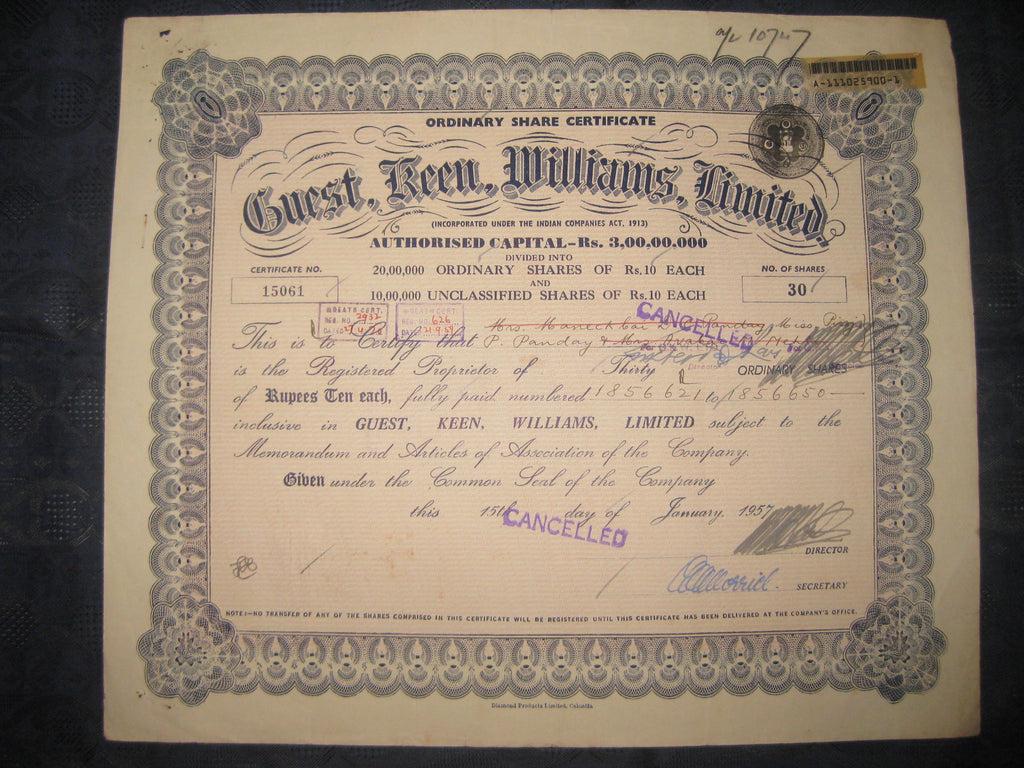 a/c 10747
A-111025900-1
ORDINARY SHARE CERTIFICATE
Guest, Keen, Williams, Limited.
(INCORPORATED UNDER THE INDIAN COMPANIES ACT, 1913)
AUTHORISED CAPITAL-Rs. 3,00,00,000
DIVIDED INTO
CERTIFICATE NO.
20,00,000 ORDINARY SHARES OF Rs.10 EACH
NO. OF SHARES
15061
AND
30
10,00,000 UNCLASSIFIED SHARES OF Rs.10 EACH
DEATH CERT.
REG. NO. 2932
DATED
DEATH CERT.
REG. NO. 626
DATED 21.9.59
CANCELLED
Mrs. Maneckbai D. Panday Miss
This is to Certify that P. Panday & Mrs.
is the Registered Proprietor of Thirty ORDINARY SHARES
Director
of Rupees Ten each, fully paid numbered 1856621 to 1856650
inclusive in GUEST, KEEN, WILLIAMS, LIMITED subject to the
Memorandum and Articles of Association of the Company.
Given under the Common Seal of the Company
this 15th day of January, 1957
CANCELLED
DIRECTOR
SECRETARY
NOTE:-NO TRANSFER OF ANY OF THE SHARES COMPRISED IN THIS CERTIFICATE WILL BE REGISTERED UNTIL THIS CERTIFICATE HAS BEEN DELIVERED AT THE COMPANY'S OFFICE.
Diamond Products Limited, Calcutta